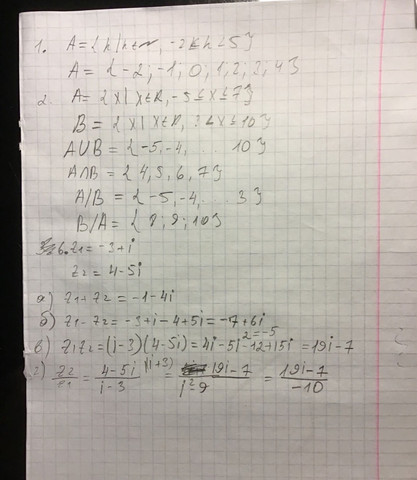 1. A={n|n∈N, -2≤n<5}
A = {-2; -1; 0; 1; 2; 2, 4}
2. A= {x| x∈R, -5≤x≤7}
B = {x| x∈R, ≤x≤10}
A∪B = {-5,-4, ... 10}
A∩B = {4,5,6,7}
A/B = {-5,-4, ... 3}
B/A = {8; 9; 10}
6. z1= -3+i
z2= 4-5i
а) z1+z2 = -1-4i
б) z1-z2 = -3+i-4+5i = -7+6i
в) z1z2=(i-3)(4-5i)=4i-5i²-12+15i =19i-7
г) z2/z1 = 4-5i/i-3 (i+3) = 19i-7/i²-9 = 19i-7/-10